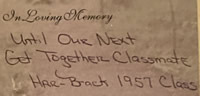 In Loving Memory
Until Our Next
Get Together Classmate
Har-Brack 1957 Class